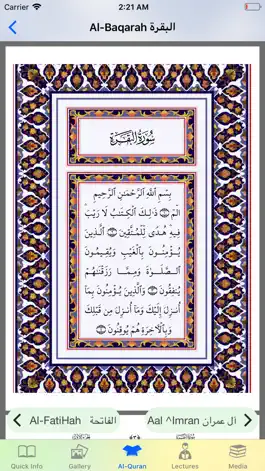 Carrier 2:21 AM
Al-Baqarah البقرة
سُورَةُ الْبَقَرَةِ
بِسْمِ اللَّهِ الرَّحْمَٰنِ الرَّحِيمِ
الٓمٓ ۝ ذَٰلِكَ الْكِتَٰبُ لَا رَيْبَ ۛ
فِيهِ ۛ هُدًى لِّلْمُتَّقِينَ ۝ الَّذِينَ
يُؤْمِنُونَ بِالْغَيْبِ وَيُقِيمُونَ
الصَّلَوٰةَ وَمِمَّا رَزَقْنَٰهُمْ
يُنفِقُونَ ۝ وَالَّذِينَ يُؤْمِنُونَ بِمَا
أُنزِلَ إِلَيْكَ وَمَا أُنزِلَ مِن قَبْلِكَ
وَبِالْأَخِرَةِ هُمْ يُوقِنُونَ ۝
Al-FatiHah الفاتحة
Aal ^Imran آل عمران
Quick Info Gallery Al-Quran Lectures Media